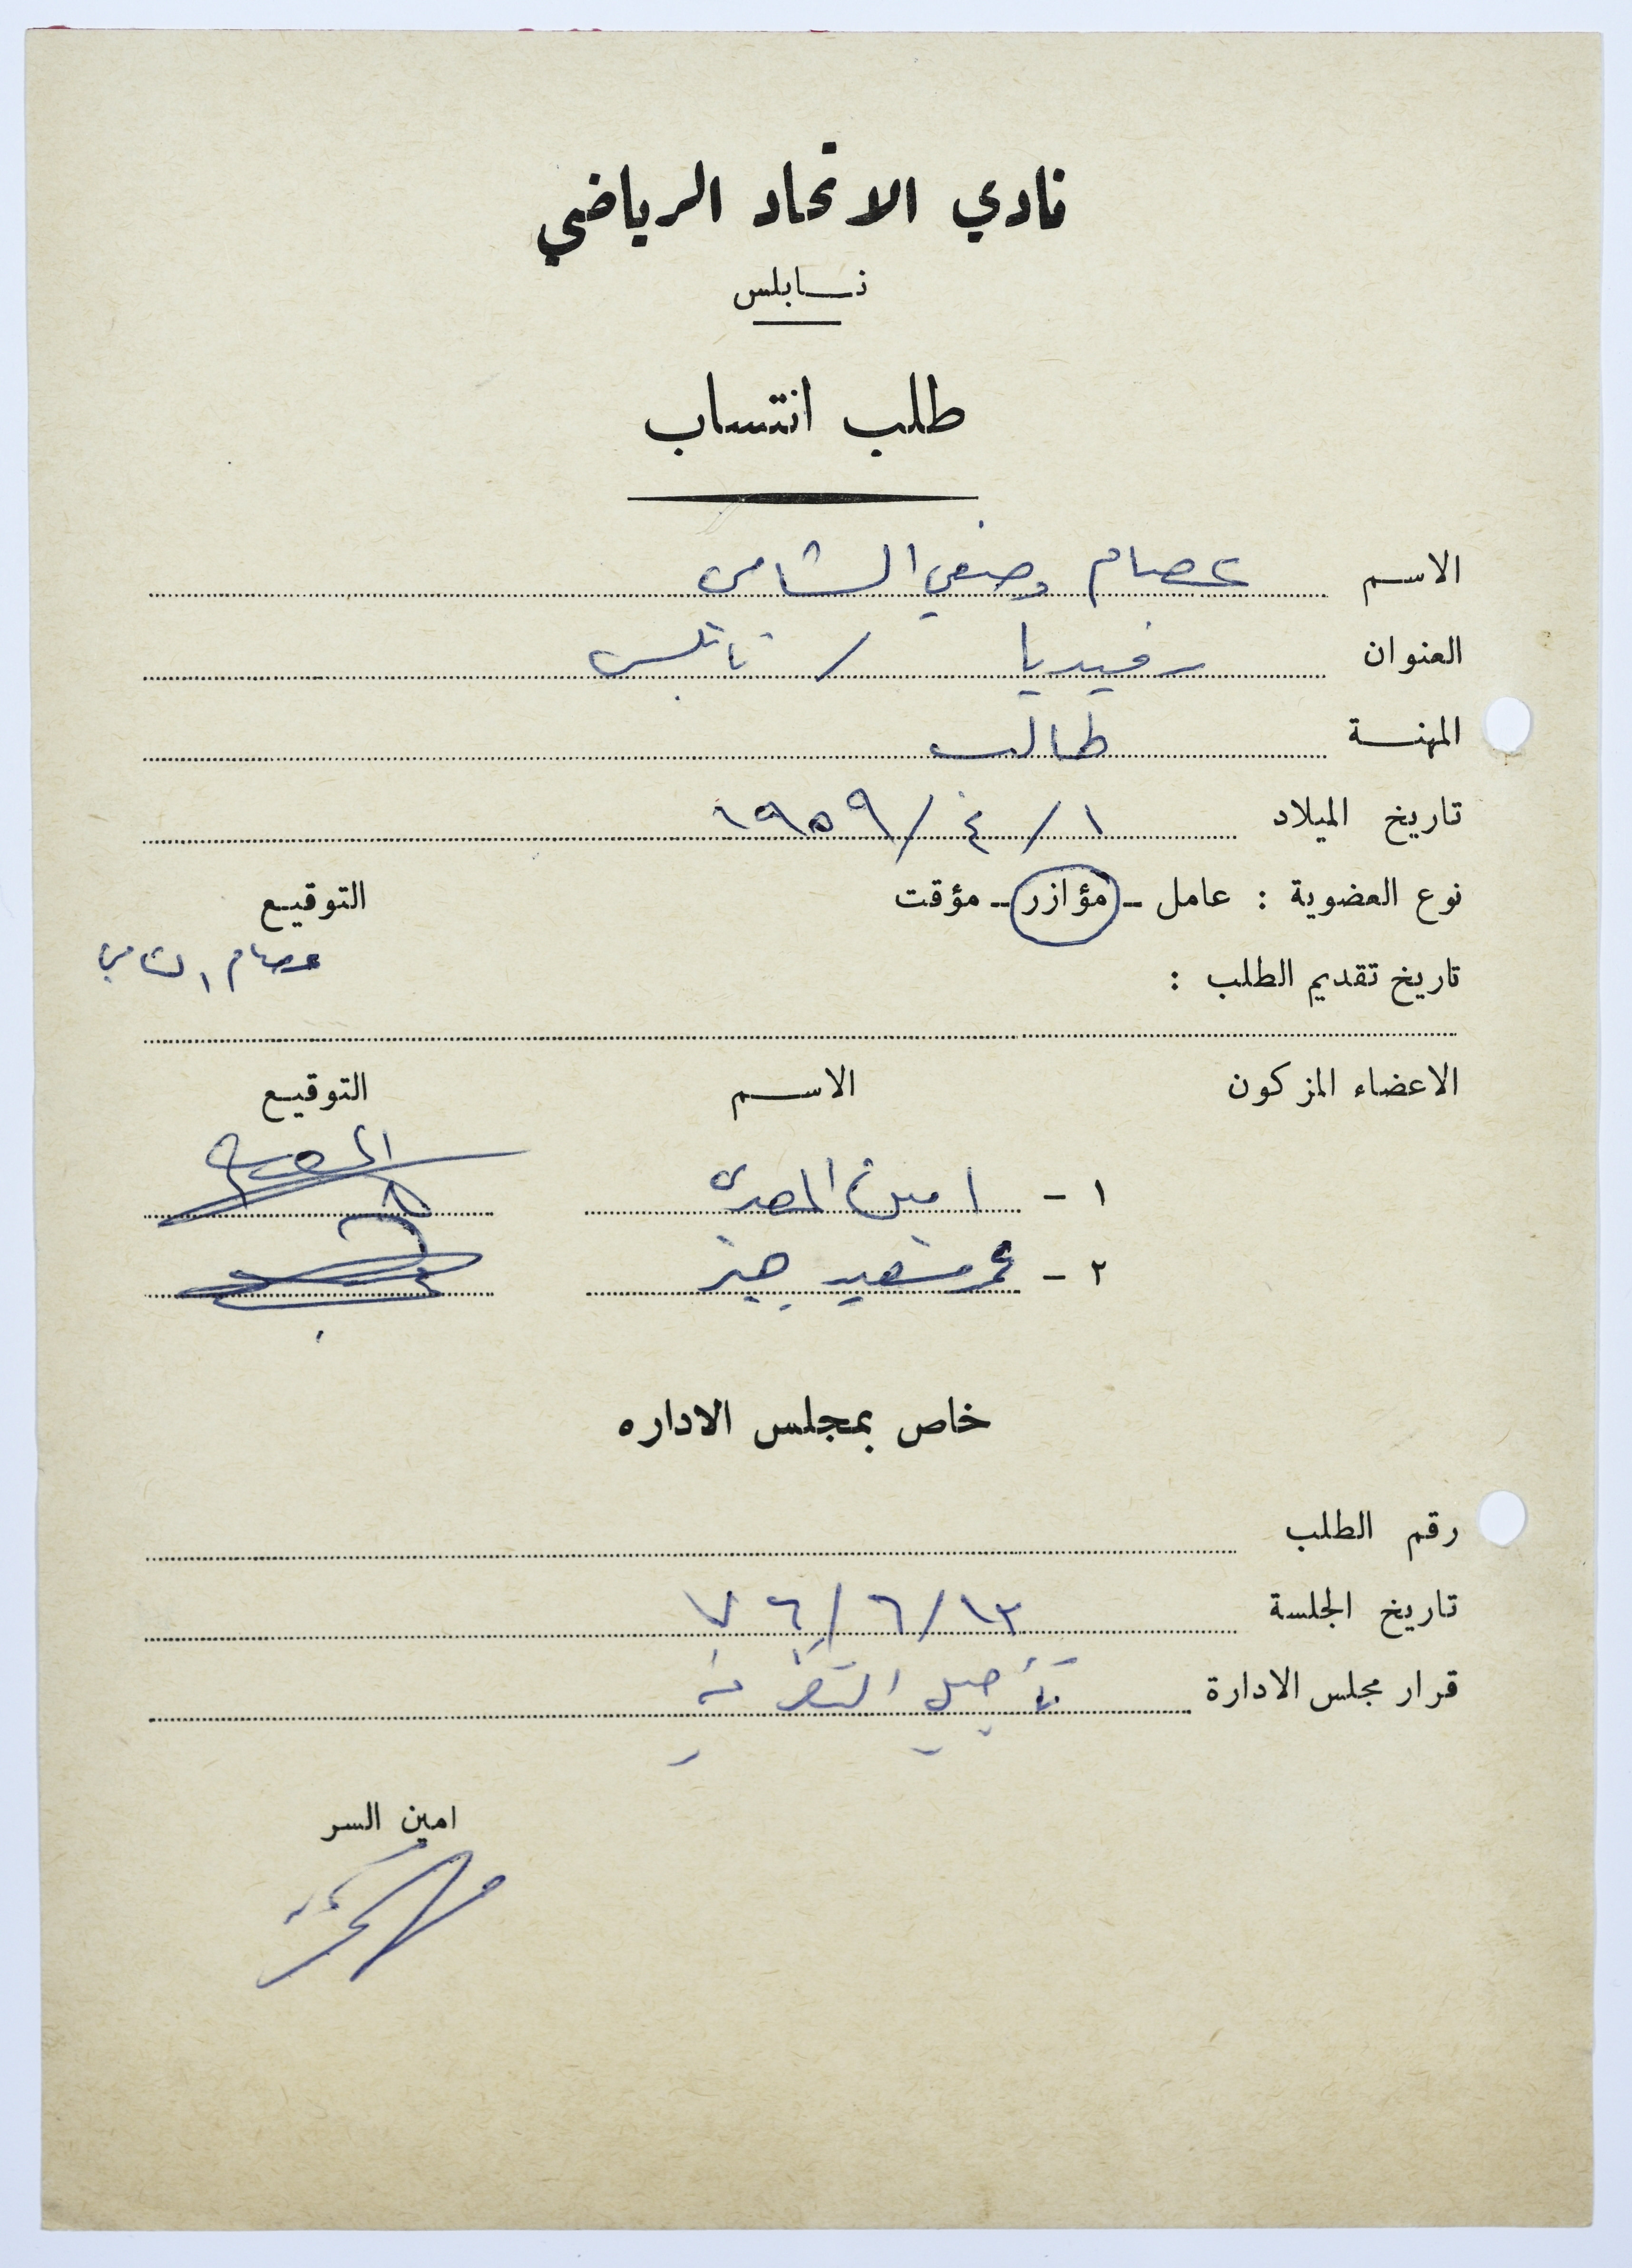 نادي الاتحاد الرياضي
نابلس
طلب انتساب
الاسم عصام وصفي الشامي
العنوان رفيديا / نابلس
المهنة طالب
تاريخ الميلاد ١ / ٤ / ١٩٥٩
نوع العضوية : عامل - مؤازر - مؤقت التوقيع
عصام الشامي
تاريخ تقديم الطلب :
الاعضاء المزكون الاسم التوقيع
١ - امين المصري
٢ - سعيد
خاص بمجلس الاداره
رقم الطلب
تاريخ الجلسة ١٣ / ٦ / ٧٦
قرار مجلس الادارة تأجيل النظر فيه
امين السر